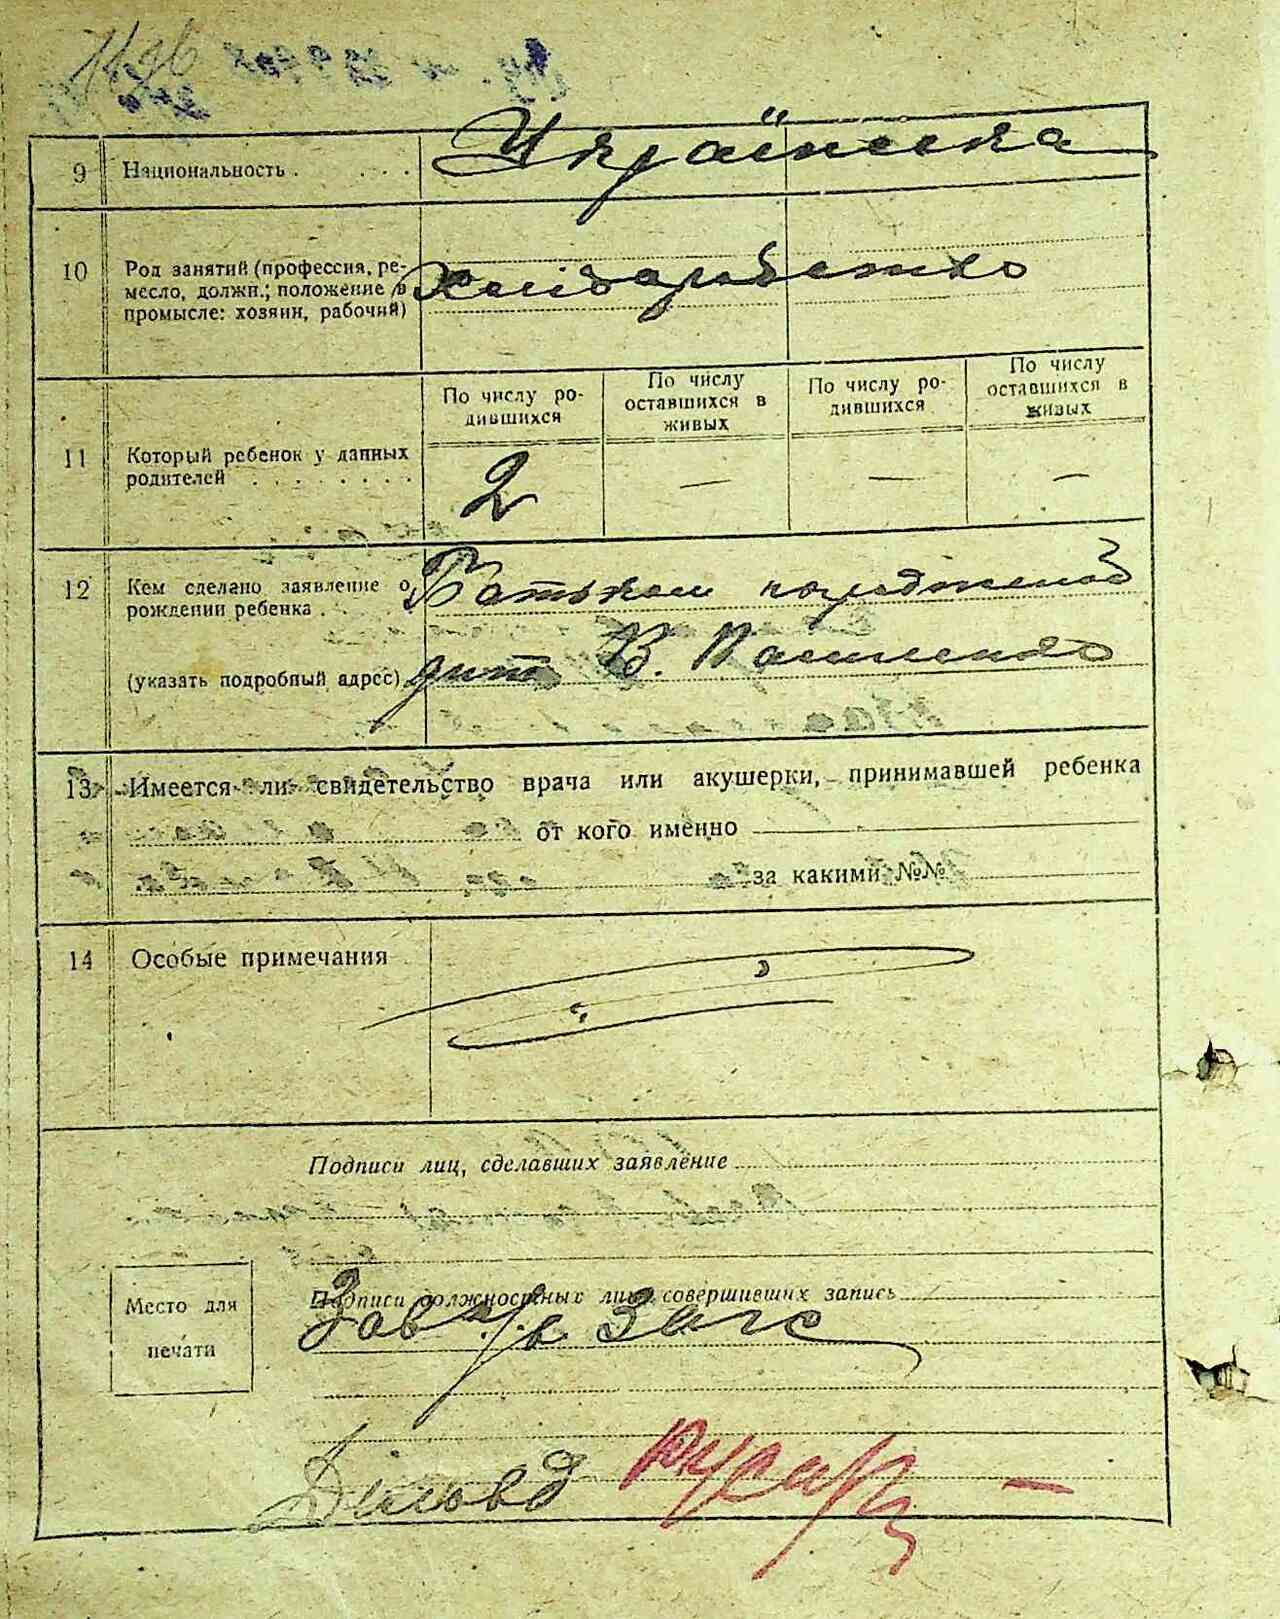 1496
9 Национальность . . . .
Українська
10 Род занятий (профессия, ре-
месло, должн.; положение в
промысле: хозяин, рабочий)
11 Который ребенок у данных
родителей . . . . . . .
По числу ро-
дившихся
По числу
оставшихся в
живых
По числу ро-
дившихся
По числу
оставшихся в
живых
2 — — —
12 Кем сделано заявление о
рождении ребенка . . . .
(указать подробный адрес)
Батьком народженой
дит В. Василенко
13 Имеется ли свидетельство врача или акушерки, принимавшей ребенка
от кого именно
за какими №№
14 Особые примечания
Подписи лиц, сделавших заявление
Место для
печати
Подписи должностных лиц, совершивших запись
Зав Загс
Діловод